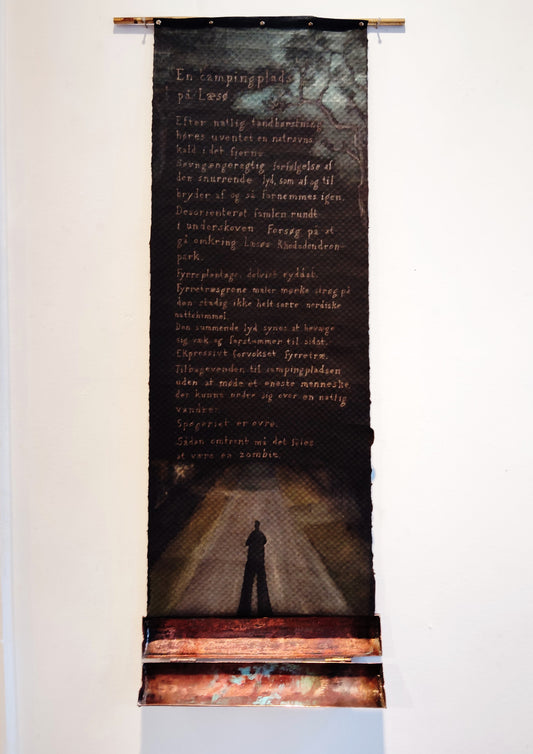 En campingplads
på Læsø
Efter natlig tandbørstning
høres uventet en natravns
kald i det fjerne.
Søvngængeragtig forfølgelse af
den snurrende lyd, som af og til
bryder af og så fornemmes igen.
Desorienteret famlen rundt
i underskoven Forsøg på at
gå omkring Læsø Rhododendron-
park.
Fyrreplantage, delvist ryddet.
Fyrretræsgrene maler mørke strøg på
den stadig ikke helt sorte nordiske
nattehimmel.
Den summende lyd synes at bevæge
sig væk og forstummer til sidst.
Ekspressivt forvokset fyrretræ.
Tilbagevenden til campingpladsen
uden at møde et eneste menneske,
der kunne undre sig over en natlig
vandrer.
Spøgeriet er ovre.
Sådan omtrent må det føles
at være en zombie.